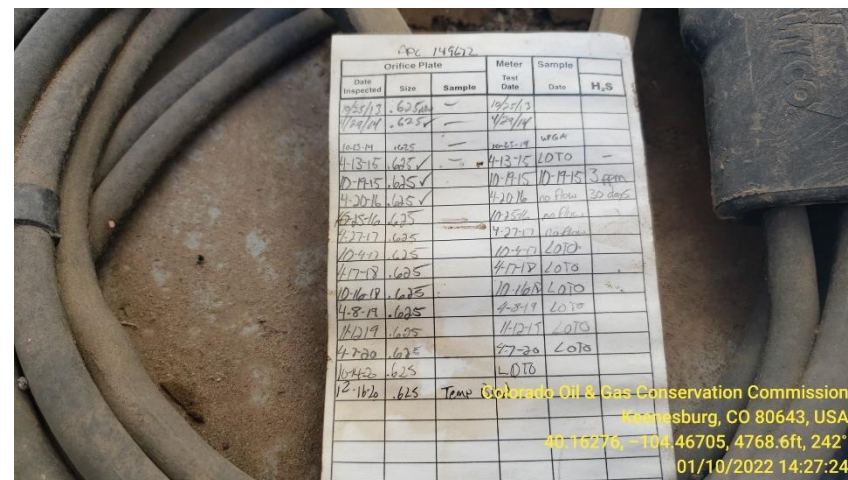 149622
Orifice Plate Meter Sample
Date Inspected Size Sample Test Date Date H₂S
10/25/13 .625 — 10/25/13
4/29/14 .625✓ — 4/29/14
10-23-14 .625 — 10-23-14
4-13-15 .625✓ — 4-13-15 LOTO —
10-19-15 .625✓ 10-19-15 10-19-15 3 ppm
4-20-16 .625✓ 4-20-16 no flow 30 days
10-25-16 .625 10-25-16 no flow
4-27-17 .625 4-27-17 no flow
10-4-17 .625 10-4-17 LOTO
4-17-18 .625 4-17-18 LOTO
10-16-18 .625 10-16-18 LOTO
4-8-19 .625 4-8-19 LOTO
11-12-19 .625 11-12-19 LOTO
4-7-20 .625 4-7-20 LOTO
10-14-20 .625 LOTO
.625 Temp
Colorado Oil & Gas Conservation Commission
Keenesburg, CO 80643, USA
40.16276, -104.46705, 4768.6ft, 242°
01/10/2022 14:27:24